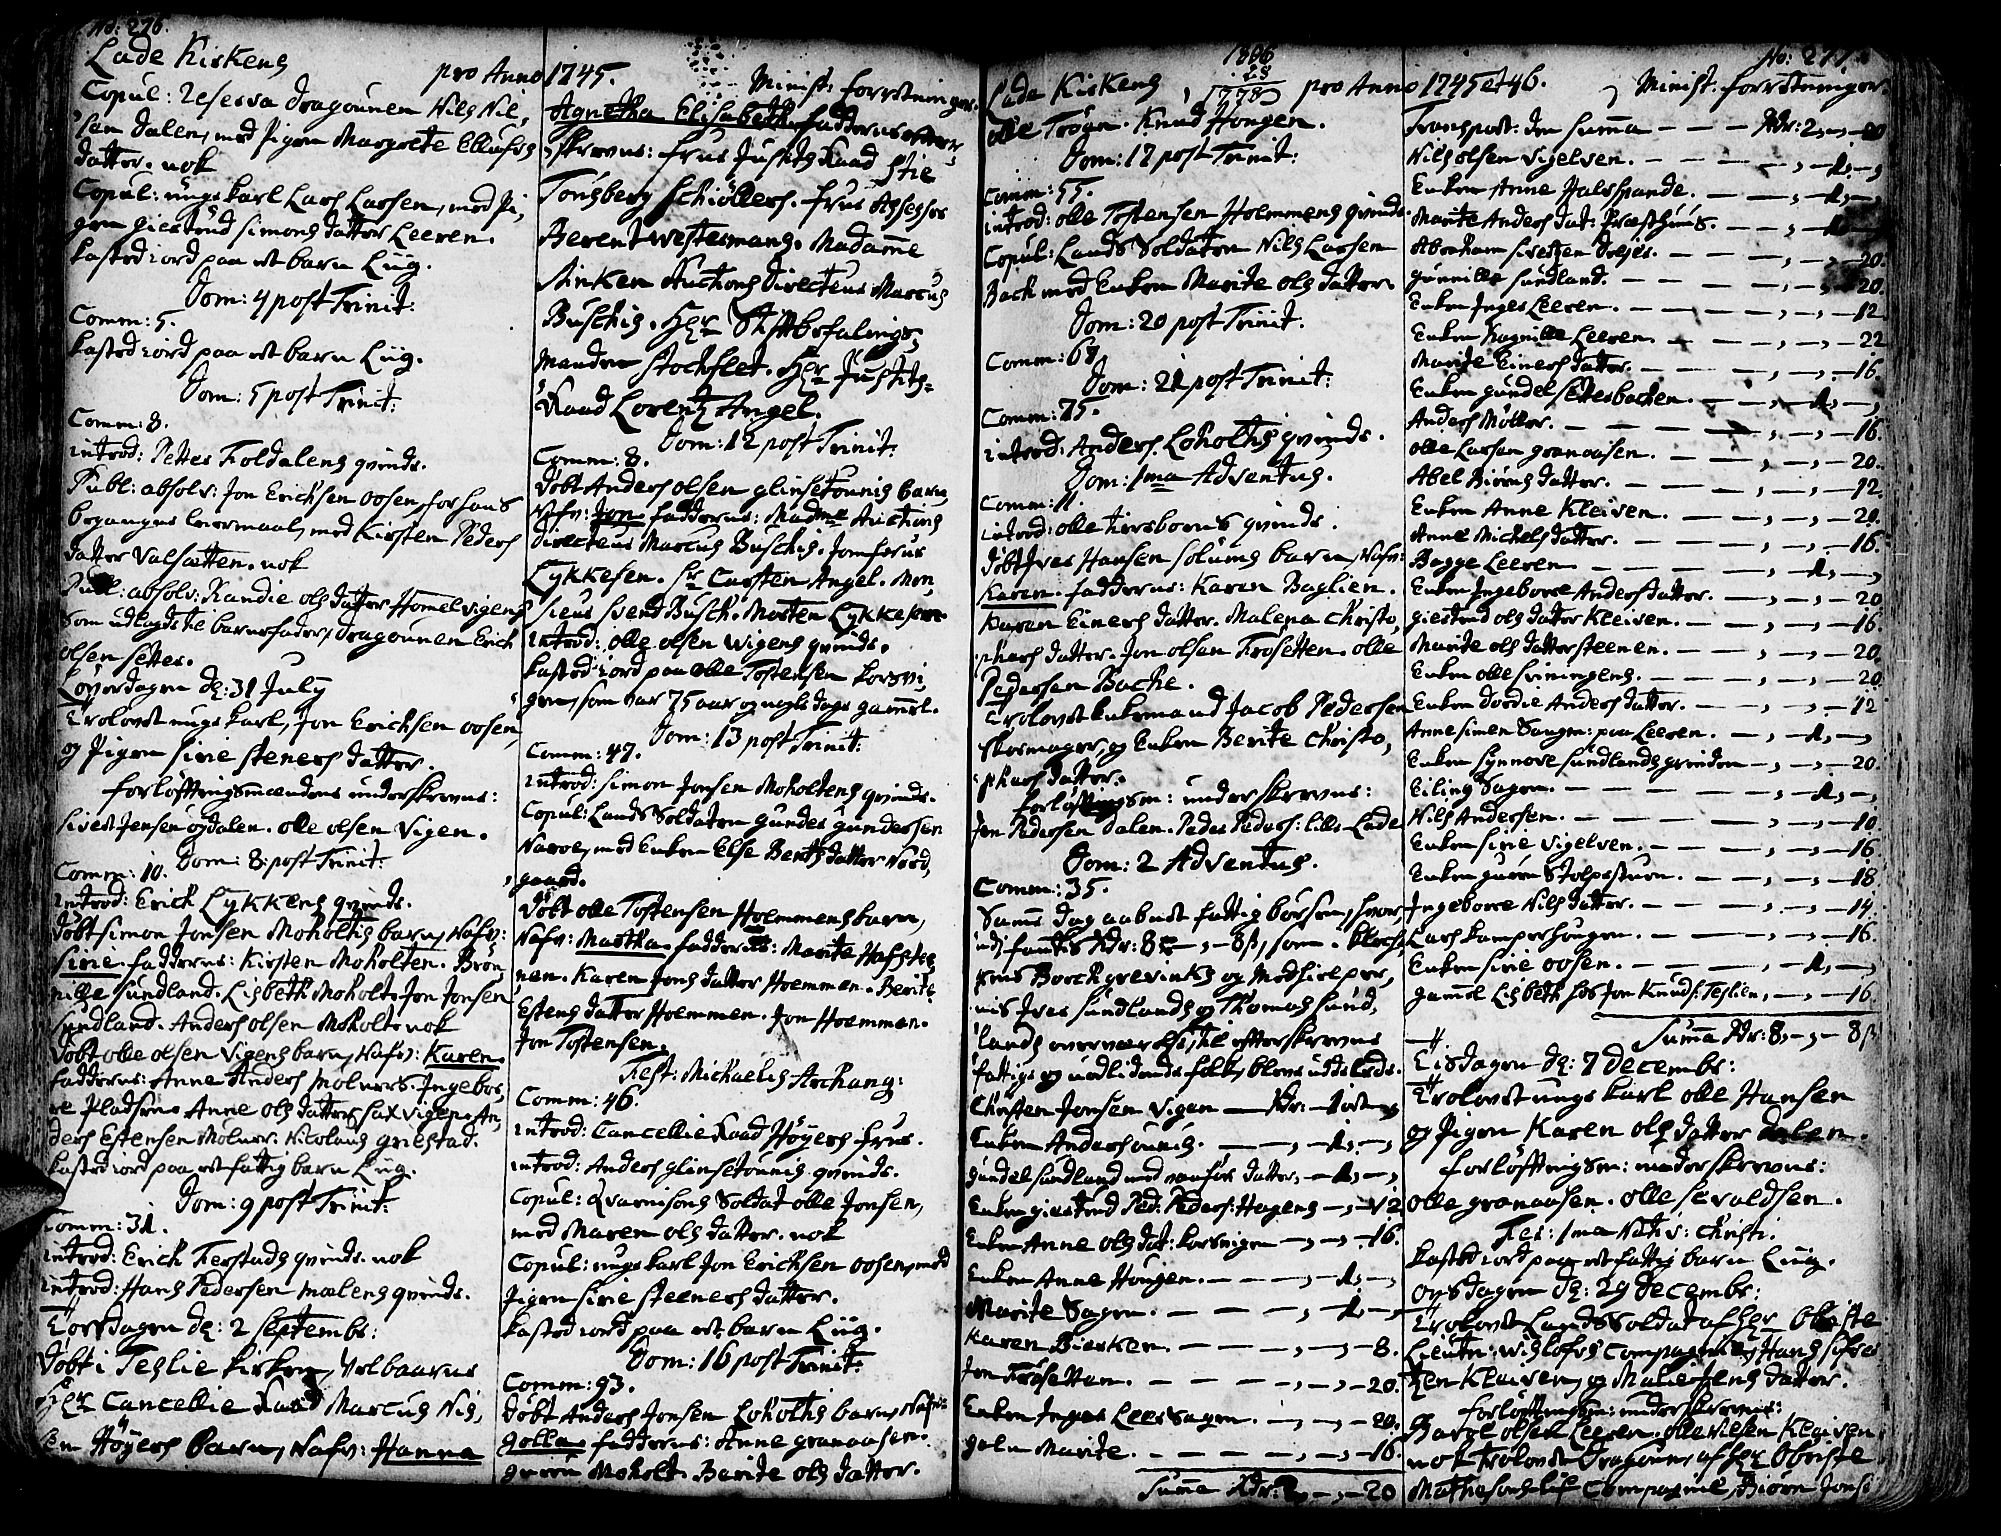 No: 276.
Lade Kirkens
pro Anno 1745.
Minist: forretninger.
Copul: Reserva dragounen Nils Nil,
sen dalen, med Pigen Margrete Ellufs
datter. nok
Copul: ungkarl Lars Larsen, med Pi,
gen Giertrud Simons datter Leeren.
kasted iord paa et barn Liig.
Dom: 4 post Trinit:
Comm: 5.
kasted iord paa et barn Liig.
Dom: 5 post Trinit:
Comm: 8.
introd: Petter Foldalens qvinde.
Publ: absolv: Jon Erichsen oosen, for hans
begangne leiermaal, med Kirsten Peders
datter Valsætten. nok
Publ: absolv: Randie ols datter Hommelvigens
som udlagde te barnefader, dragounen Erich
olsen Setter.
Løverdagen d: 31 July
Trolovet ungkarl, Jon Erichsen oosen,
og Pigen Sirie Steners datter.
forløftningsmændene underskrevne:
Sivert Jensen ogdalen. olle olsen Vigen.
Dom: 8 post Trinit:
Comm: 10.
introd: Erich Lykkens qvinde.
døbt Simon Jonsen Moholtis barn, Nafn:
Sirie. fadderne: Kirsten Moholten. Brøn,
nille Sundland. Lisbeth Moholt. Jon Jonsen
Sundland. Anders olsen Moholt. nok
døbt olle olsen Vigens barn, Nafn: Karen.
fadderne: Anne Anders Molners. Ingebor,
re Pladsen. Anne ols datter Saxvigen. An,
ders Estensen Molner. Nicolaus Griestad.
kasted iord paa et fattig barn Liig.
Dom: 9 post Trinit:
Comm: 31.
introd: Erich Ferstads qvinde. nok
introd: Hans Pedersen Mælens qvinde.
Torsdagen d: 2 Septembr:
døbt i Teslie kirken, Velbaarne
Hr Cancellie Raad Marcus Nis,
sen Høyers barn, Nafn: Hanna
Agnetha Elisabeth. fadderne efter,
skrevne: frue Justits Raad Stie
Tonsberg Schiøllers. frue Assessor
Berent Westermans. Madamme
Sinken Auctions Directeur Marcus
Buschis. Hr Stiftbefalings,
manden Stockflet. Hr Justits=
Raad Lorentz Angel.
Dom: 12 post Trinit:
Comm: 8.
døbt Anders olsen glinsetounis barn,
Nafn: Jon. fadderne: Madme Auctions
directeur Marcus Buschis. Jomfrue
Lykkesen. Sr Carsten Angel. Mon,
sieur Svend Busch. Morten Lykkesen
introd: olle olsen Wigens qvinde.
kasted iord paa olle Tostensen korsvi,
gen, som var 75 aar og nogle dage gammel.
Dom: 13 post Trinit:
Comm: 47.
introd: Simon Jonsen Moholtens qvinde.
Copul: Lands Soldaten Gunder Gundersen
Narve, med Enken Else Berits datter Nord,
gaard.
døbt olle Tostensen Hoemmens barn,
Nafn: Martha. fadderne: Marite Hafste,
nen. Karen Jons datter Hoemmen. Berite
Estens datter Hoemmen. Jon Hoemmen.
Jon Tostensen.
Fest: Michaelis Archang:
Comm: 46.
introd: Cancellie Raad Høyers frue.
introd: Anders glinsetounis qvinde.
Copul: Qvarnisons Soldat olle Jonsen,
med Maren ols datter. nok
Copul: ungkarl Jon Erichsen oosen, med
Pigen Sirie Steeners datter.
kasted iord paa et barn Liig.
Dom: 16 post Trinit:
Comm: 93.
døbt Anders Jonsen Loholtis barn, Nafn:
Golla. fadderne: Anne granaasen.
guren Moholt. Berite ols datter.
1806
28
1778
No: 277.
Lade Kirkens
pro Anno 1745 et 46.
Minist: forretninger.
olle Trøan. Knud Hougen.
Dom: 17 post Trinit:
Comm: 55.
introd: olle Tostensen Hoemmens qvinde.
Copul: Lands Soldaten Nils Larsen
Bach med Enken Marite ols datter.
Dom: 20 post Trinit:
Comm: 67
Dom: 21 post Trinit:
Comm: 75.
introd: Anders Loholtis qvinde.
Dom: 1ma Adventus.
Comm: 11
introd: olle Kirsbornes qvinde.
døbt Iver Hansen Solums barn, Nafn:
Karen. fadderne: Karen Baglien.
Karen Einers datter. Malena Christo,
phers datter. Jon olsen Frosetten. olle
Pedersen Bache.
Trolovet Enkemand Jacob Pedersen
skomager, og Enken Berite Christo,
phers datter.
forløftningsm: underskrevne:
Jon Pedersen dalen. Peder Peders: lille Lade
Dom: 2 Adventus.
Comm: 35.
Samme dag aabnet fattig børsen, hvor
udj fantes Rdr: 8 –, – 8 ß, som Kloch,
Iver Sundlands og Thomas Sund,
lands overværelse, til efterskrevne
fattige og nødlidende folk, blev uddeelede.
Christen Jonsen Vigen – Rdr: – 1 ort –
Enken Anders ounis. – – –, – 1, –,
Gundel Sundland med vanfør datter, – 1, –,
Enken Giertrud Ped: Peders: Hagens –, – 12
Enken Anne ols dat: korsvigen –, –, – 16.
Enken Anne Hougen. – – –, – 1, –,
Marite Sagen. – – – –, – 1, –,
Karen Bierken. – – –, –, – 8.
Jon Frosettem. – – –, –, – 20.
Enken Inger Leer Sagen. –, –, – 20.
galn Marite. – – – –, –, – 16.
Summa Rdr: 2, –, – 20
Transport: den Summa – – – Rdr: 2, –, – 20
Nils olsen Vigelven. – – – –, – 1, –,
Enken Anne Halsspande. – – –, – 1, –,
Marite Anders dat: Præsthuus. – –, – 1, –,
Abraham Sivertsen – – –, –, – 20.
gunnille Sundland. – – –, –, – 20.
Enken Inger Leeren. – – –, –, – 12
Enken Ragnille Leeren – – –, –, – 22
Marite Einers datter. – – –, –, – 16.
Enken Gundel Settesbachen. – –, – 1, –,
Anders Møller. – – – –, –, – 16.
olle Larsen granaasen. – – –, –, – 20.
Abel Biørns datter. – – –, –, – 12.
Enken Anne Kleiven. – – –, –, – 20.
Anne Michels datter. – – –, –, – 16.
Bagge Leeren – – – –, – 1, –,
Enken Ingeborre Anders datter. –, –, – 20
giertrud ols datter Kleiven. – –, –, – 16.
Marite ols datter Steenen. – –, –, – 20.
Enken olle Sviningens. – – –, –, – 20
Enken dordie Anders datter. – –, –, – 12
Anne Simen Saugen: paa Leeren. –, – 1, –,
Enken Synnove Sundlands grinden –, –, – 20.
Eiling Sagen. – – – –, – 1, –,
Nils Andersen. – – – –, –, – 10
Enken Sirie Vigelven. – – –, –, – 16.
Enken guren Stolpestuen. – –, –, – 18
Ingeborre Nils datter. – – –, –, – 14.
Lars kamperhougen. – – –, –, – 16.
Enken Sirie oosen. – – – –, – 1, –,
gammel Lisbeth hos Jon Knuds: Teslien, –, – 16.
Summa Rdr: 8, –, – 8 ß
Tisdagen d: 7 Decembr:
Trolovet ungkarl olle Hansen
og Pigen Karen ols datter dalen.
forløftningsm: underskrevne:
olle granaasen. olle Sevaldsen.
Fer: 1ma Nativ: Christi.
kasted iord paa et fattig barn Liig.
onsdagen d: 29 Decembr:
Trolovet Lands Soldat af Hr Obriste
Lieutn: Wislofs Compagnie, Hans Sifver
tzen Kleiven, og Malie Jens datter.
forløftningsm: underskrevne:
Baroe olsen Leeren. olle Nilsen Kleiven.
nok Trolovet Dragoun af Hr Obriste
Mathesons Lif Compagnie, Biørn Jons: